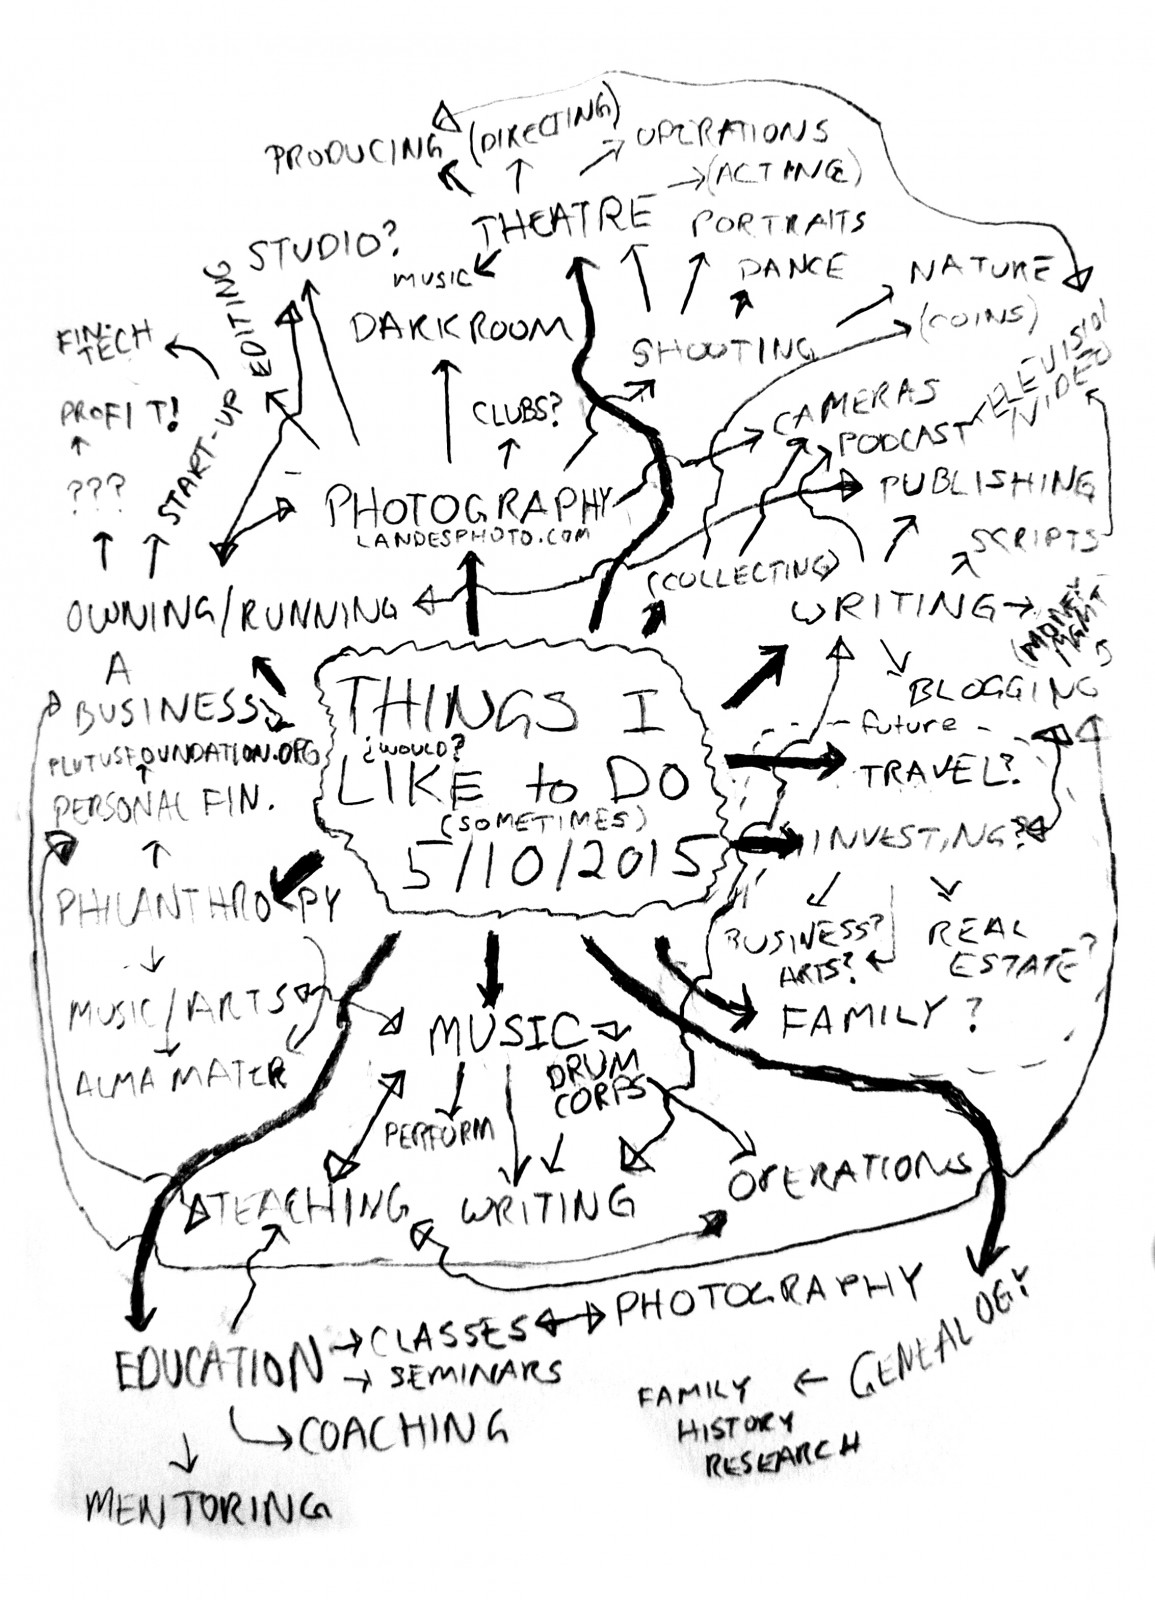 PRODUCING
(DIRECTING)
OPERATIONS
(ACTING)
THEATRE
PORTRAITS
STUDIO?
MUSIC
DANCE
NATURE
(COINS)
FIN-TECH
EDITING
DARKROOM
SHOOTING
TELEVISION
VIDEO
PROFIT!
START-UP
CLUBS?
CAMERAS
PODCAST
???
PHOTOGRAPHY
LANDESPHOTO.COM
PUBLISHING
SCRIPTS
(COLLECTING)
OWNING/RUNNING
A
BUSINESS
WRITING
(MONEY
MGMT
BLOGGING
THINGS I
¿WOULD?
LIKE to DO
(SOMETIMES)
5/10/2015
future
TRAVEL?
PLUTUSFOUNDATION.ORG
PERSONAL FIN.
INVESTING?
PHILANTHROPY
BUSINESS?
ARTS?
REAL
ESTATE?
MUSIC/ARTS
ALMA MATER
MUSIC
FAMILY?
DRUM
CORPS
PERFORM
TEACHING
WRITING
OPERATIONS
EDUCATION
CLASSES
PHOTOGRAPHY
SEMINARS
GENEALOGY
COACHING
FAMILY
HISTORY
RESEARCH
MENTORING